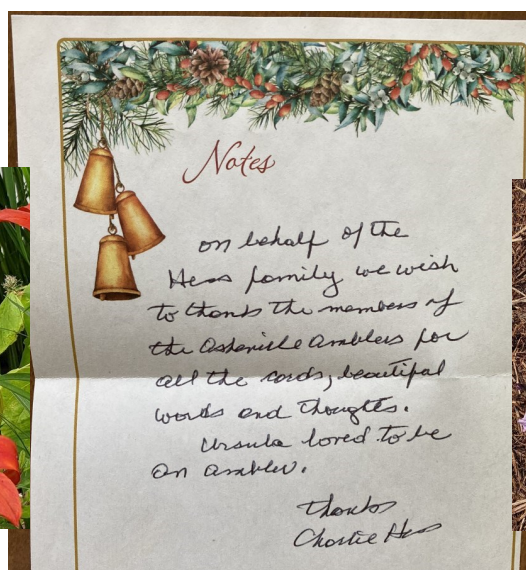 Notes
on behalf of the
Hess family we wish
to thank the members of
the Asheville Amblers for
all the cards, beautiful
words and thoughts.
Ursula loved to be
an ambler.
thanks
Charlie Hess